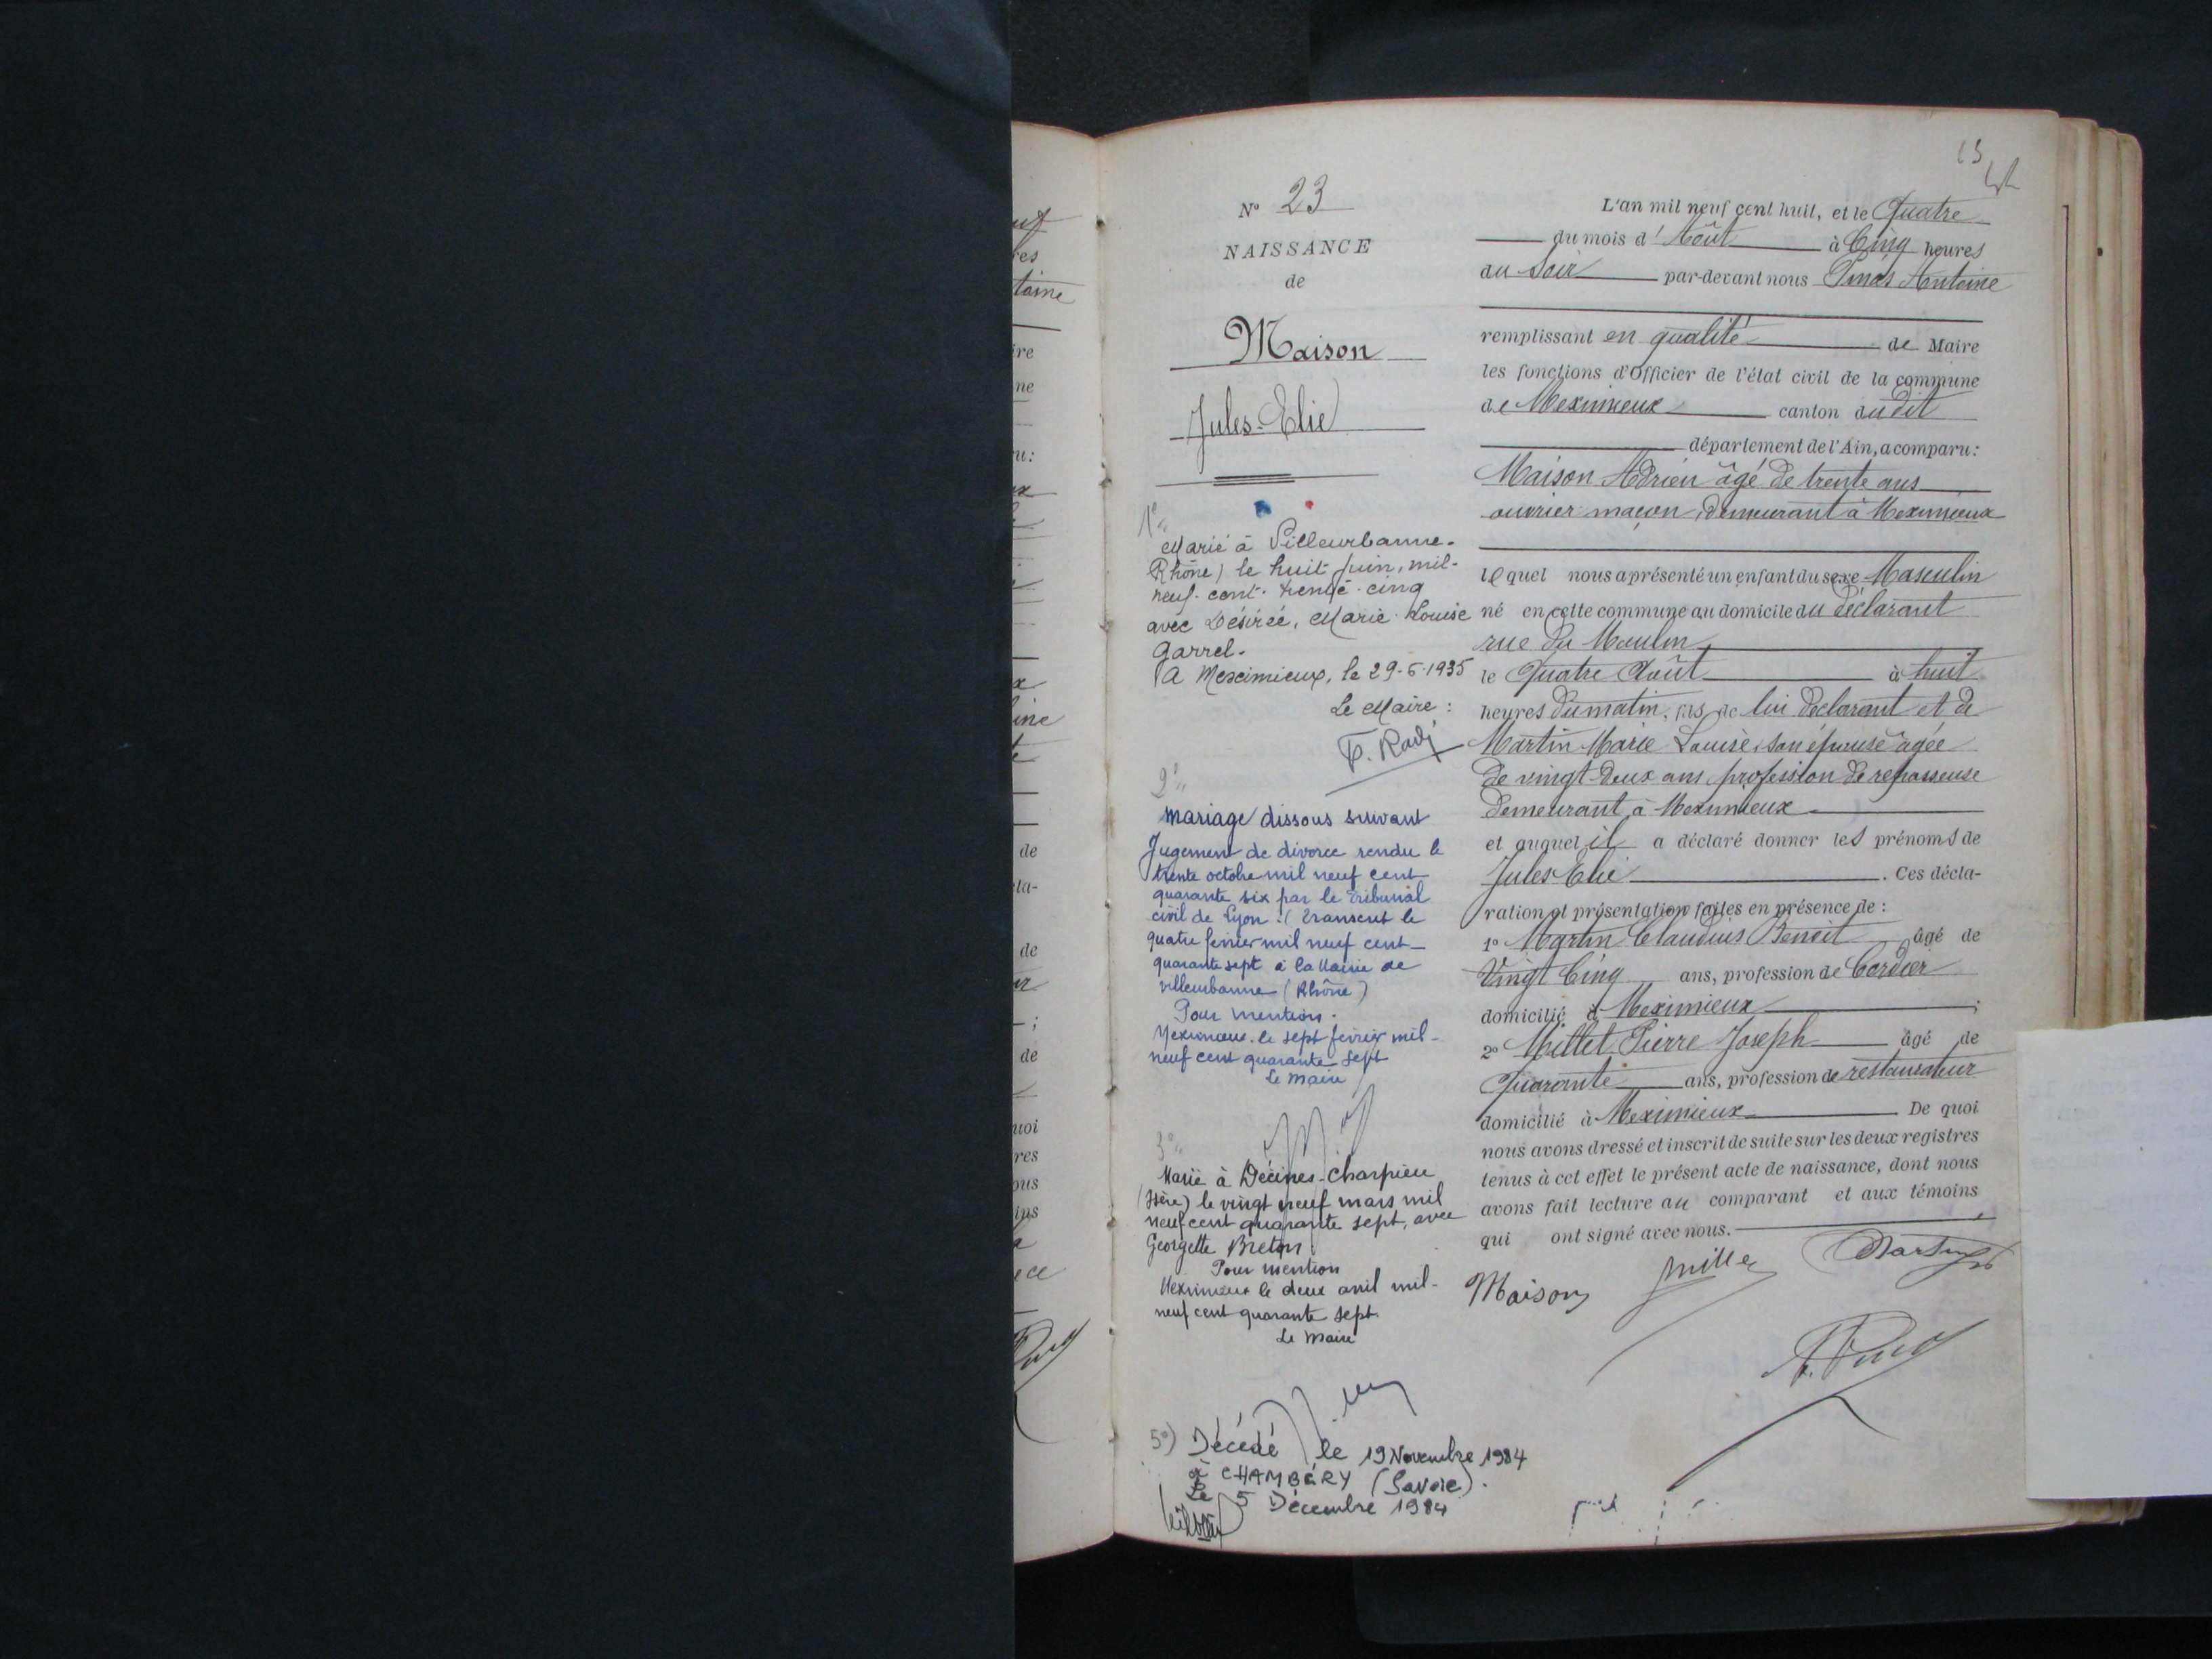 N° 23
NAISSANCE
de
Maison
Jules-Elie
1°
Marié à Villeurbanne.
Rhône) le huit juin, mil-
neuf-cent-trente-cinq
avec Désirée, Marie-Louise
Garrel.
A Meximieux, le 29-6-1935
Le Maire :
2°
Mariage dissous suivant
Jugement de divorce rendu le
trente octobre mil neuf cent
quarante six par le Tribunal
civil de Lyon. (Transcrit le
quatre février mil neuf cent
quarante sept à la Mairie de
villeurbanne (Rhône)
Pour mention.
Meximieux. le sept février mil-
neuf cent quarante sept
Le Maire
3°
Marié à Décines-Charpieu
(Isère) le vingt neuf mars mil
neuf cent quarante sept, avec
Georgette Breton.
Pour mention
Meximieux le deux avril mil-
neuf cent quarante sept.
Le Maire
5°) Décédé le 19 Novembre 1984
à CHAMBÉRY (Savoie).
Le 5 Décembre 1984
L'an mil neuf cent huit, et le Quatre
du mois d'Août à Cinq heures
du Soir par-devant nous Antoine
remplissant en qualité de Maire
les fonctions d'Officier de l'état civil de la commune
de Meximieux canton dudit
département de l'Ain, a comparu :
Maison Adrien âgé de trente ans
ouvrier maçon, demeurant à Meximieux
lequel nous a présenté un enfant du sexe Masculin
né en cette commune au domicile du déclarant
rue du Moulin
le Quatre Août à huit
heures du matin, fils de lui déclarant et de
Martin Marie Louise, son épouse âgée
de vingt-deux ans, profession de repasseuse
demeurant à Meximieux
et auquel il a déclaré donner les prénoms de
Jules Elie . Ces décla-
ration et présentation faites en présence de :
1° Martin Claudius Benoit âgé de
Vingt Cinq ans, profession de Cordier
domicilié à Meximieux ;
2° Millet Pierre Joseph âgé de
Quarante ans, profession de restaurateur
domicilié à Meximieux De quoi
nous avons dressé et inscrit de suite sur les deux registres
tenus à cet effet le présent acte de naissance, dont nous
avons fait lecture au comparant et aux témoins
qui ont signé avec nous.
Maison